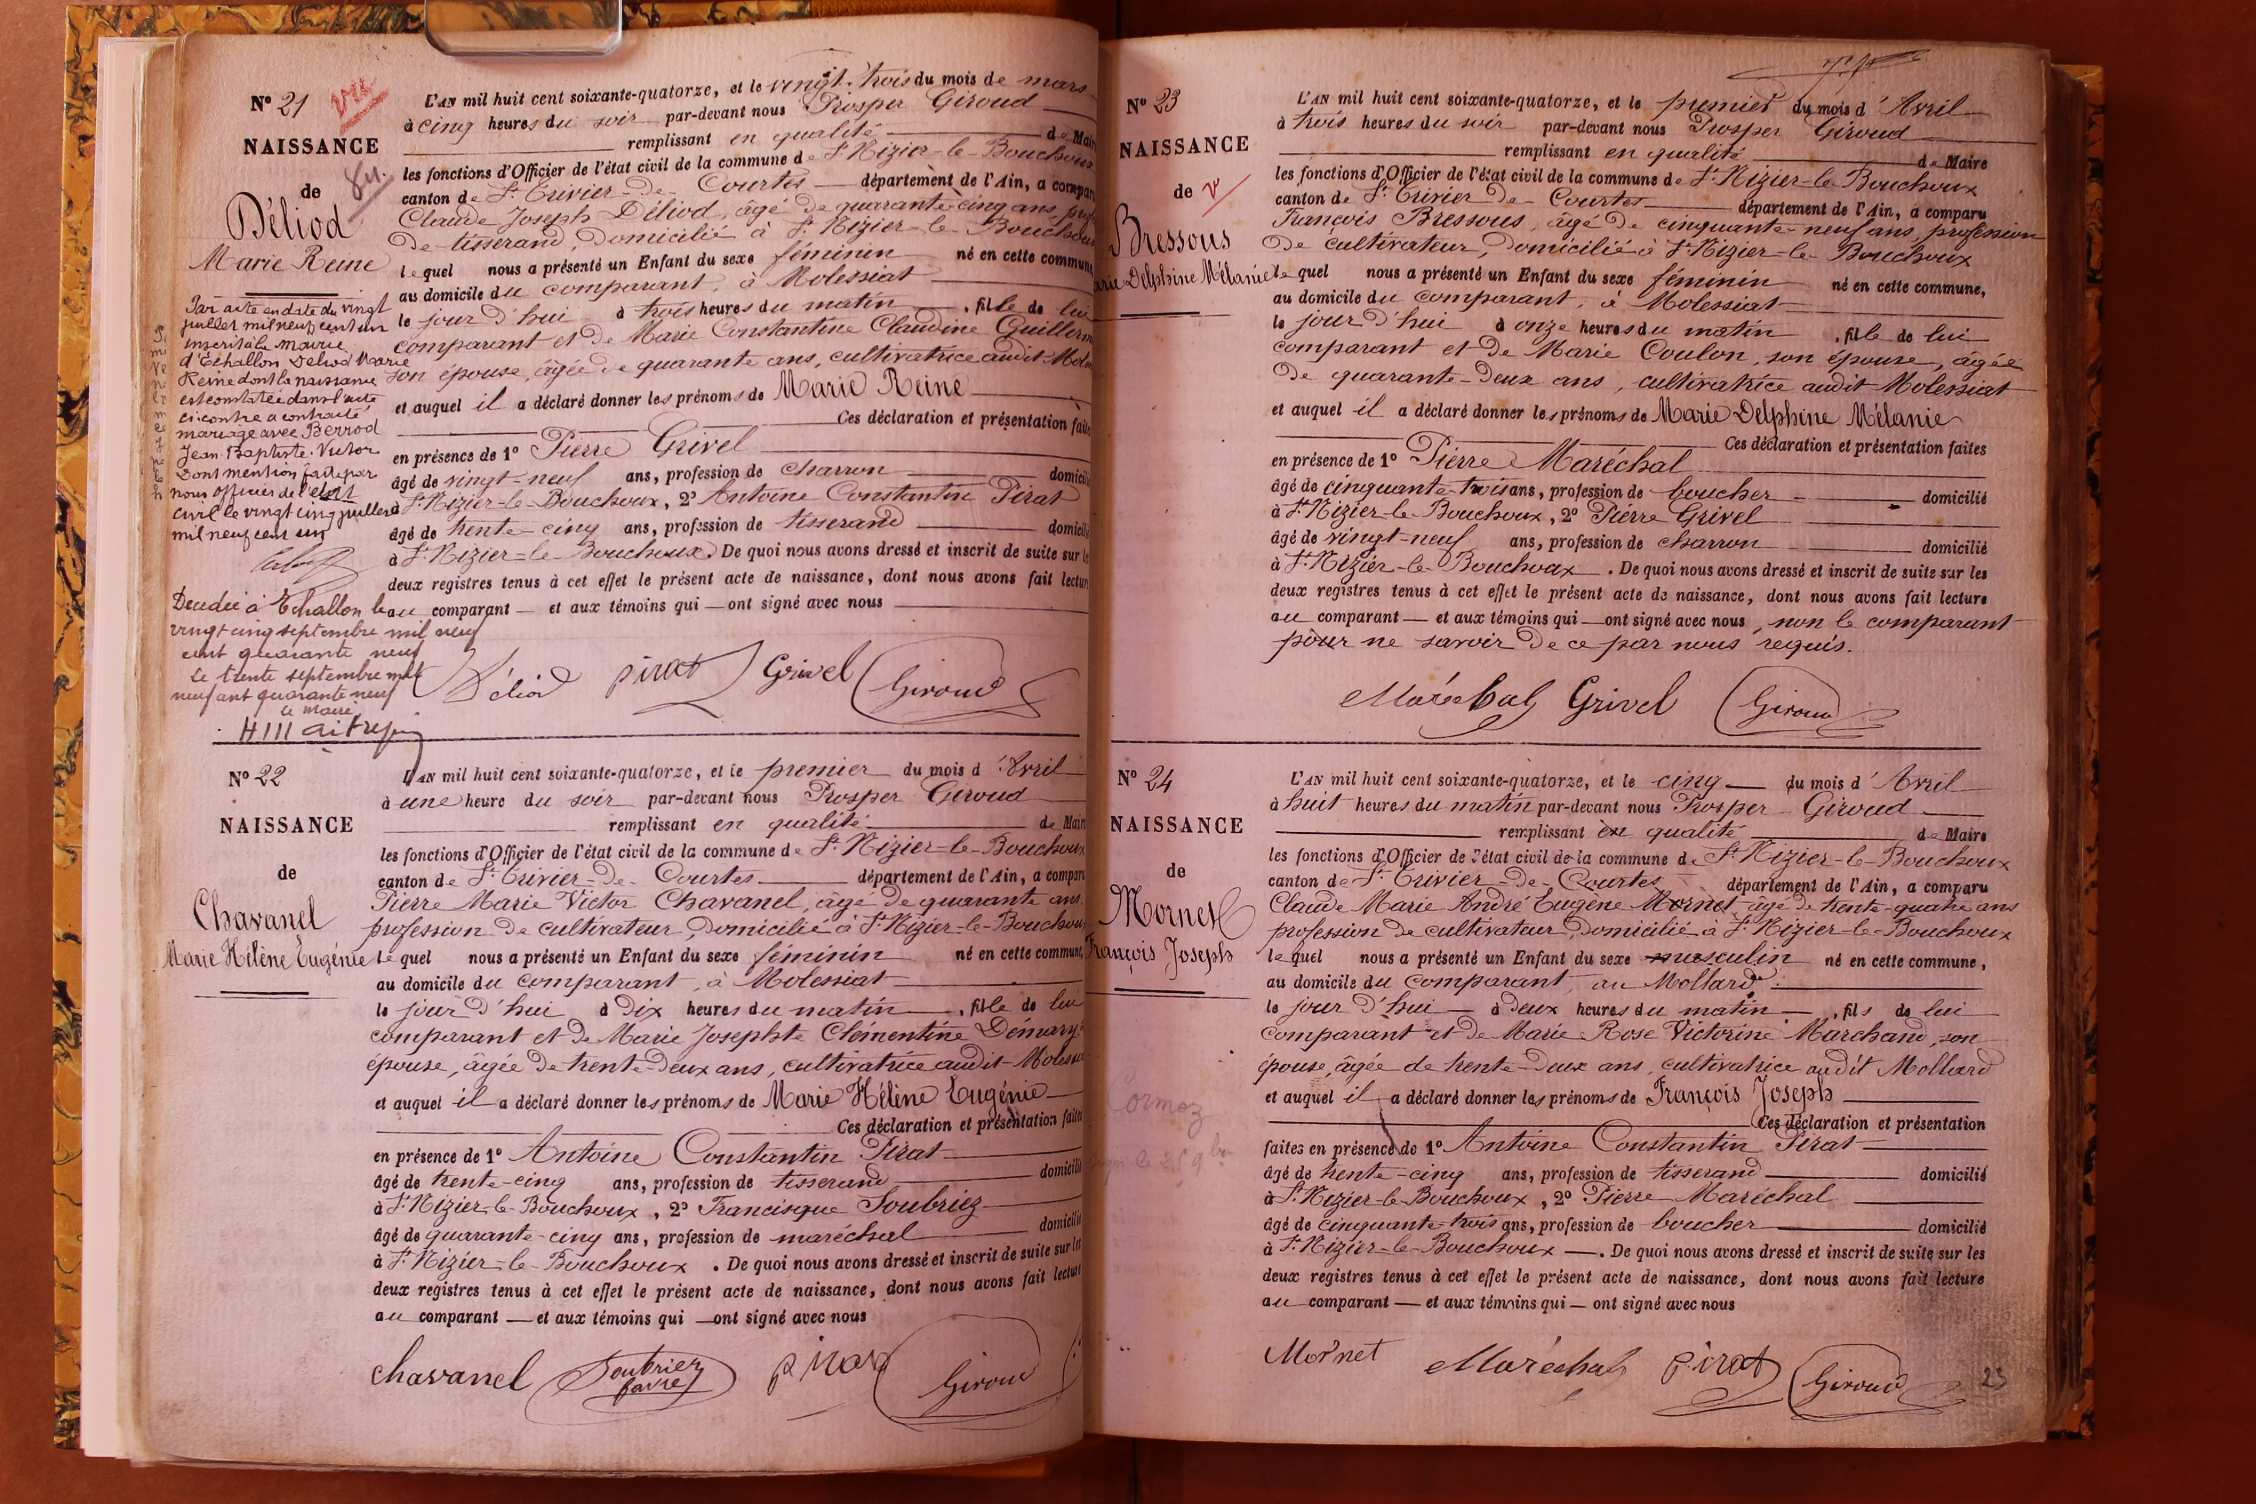 N° 21
vu
NAISSANCE
de
Déliod
Marie Reine
Par acte en date du vingt
juillet mil neuf cent un
inscrit à la mairie
d'Echallon Déliod Marie
Reine dont la naissance
est constatée dans l'acte
ci-contre a contracté
mariage avec Berrod
Jean-Baptiste Victor
Dont mention faite par
nous officier de l'état
civil le vingt cinq juillet
mil neuf cent un
Décédée à Echallon le
vingt cinq septembre mil neuf
cent quarante neuf
Le trente septembre mil
neuf cent quarante neuf
Le Maire
L'AN mil huit cent soixante-quatorze, et le vingt-trois du mois de mars
à cinq heures du soir par-devant nous Prosper Giroud
remplissant en qualité de Mair
les fonctions d'Officier de l'état civil de la commune de St Nizier-le-Bouchoux
canton de St Trivier-de-Courtes département de l'Ain, a compar
Claude Joseph Déliod, âgé de quarante-cinq ans, prof
de tisserand, domicilié à St Nizier-le-Bouchoux
lequel nous a présenté un Enfant du sexe féminin né en cette commune
au domicile du comparant, à Molessiat
le jour d'hui à trois heures du matin, fille de lui
comparant et de Marie Constantine Claudine Guillerm
son épouse, âgée de quarante ans, cultivatrice audit Mol
et auquel il a déclaré donner les prénoms de Marie Reine
Ces déclaration et présentation faites
en présence de 1° Pierre Grivel
âgé de vingt-neuf ans, profession de charron domicilié
à St Nizier-le-Bouchoux, 2° Antoine Constantin Pirat
âgé de trente-cinq ans, profession de tisserand domicilié
à St Nizier-le-Bouchoux. De quoi nous avons dressé et inscrit de suite sur les
deux registres tenus à cet effet le présent acte de naissance, dont nous avons fait lecture
au comparant — et aux témoins qui — ont signé avec nous
Déliod pirat Grivel Giroud
N° 22
NAISSANCE
de
Chavanel
Marie Hélène Eugénie
L'AN mil huit cent soixante-quatorze, et le premier du mois d'Avril
à une heure du soir par-devant nous Prosper Giroud
remplissant en qualité de Mair
les fonctions d'Officier de l'état civil de la commune de St Nizier-le-Bouchoux
canton de St Trivier-de-Courtes département de l'Ain, a comparu
Pierre Marie Victor Chavanel, âgé de quarante ans
profession de cultivateur, domicilié à St Nizier-le-Bouchoux
lequel nous a présenté un Enfant du sexe féminin né en cette commune,
au domicile du comparant, à Molessiat
le jour d'hui à dix heures du matin, fille de lui
comparant et de Marie Josephte Clémentine
épouse, âgée de trente-deux ans, cultivatrice audit Moless
et auquel il a déclaré donner les prénoms de Marie Hélène Eugénie
Ces déclaration et présentation faites
en présence de 1° Antoine Constantin Pirat
âgé de trente-cinq ans, profession de tisserand domicilié
à St Nizier-le-Bouchoux, 2° Francisque Soubriez
âgé de quarante-cinq ans, profession de maréchal domicilié
à St Nizier-le-Bouchoux. De quoi nous avons dressé et inscrit de suite sur les
deux registres tenus à cet effet le présent acte de naissance, dont nous avons fait lecture
au comparant — et aux témoins qui — ont signé avec nous
chavanel Soubriez favre pirat Giroud
N° 23
NAISSANCE
de
Bressous
Marie Delphine Mélanie
L'AN mil huit cent soixante-quatorze, et le premier du mois d'Avril
à trois heures du soir par-devant nous Prosper Giroud
remplissant en qualité de Maire
les fonctions d'Officier de l'état civil de la commune de St Nizier-le-Bouchoux
canton de St Trivier-de-Courtes département de l'Ain, a comparu
François Bressous, âgé de cinquante-neuf ans, profession
de cultivateur, domicilié à St Nizier-le-Bouchoux
lequel nous a présenté un Enfant du sexe féminin né en cette commune,
au domicile du comparant, à Molessiat
le jour d'hui à onze heures du matin, fille de lui
comparant et de Marie Coulon, son épouse, âgée
de quarante-deux ans, cultivatrice audit Molessiat
et auquel il a déclaré donner les prénoms de Marie Delphine Mélanie
Ces déclaration et présentation faites
en présence de 1° Pierre Maréchal
âgé de cinquante-trois ans, profession de boucher domicilié
à St Nizier-le-Bouchoux, 2° Pierre Grivel
âgé de vingt-neuf ans, profession de charron domicilié
à St Nizier-le-Bouchoux. De quoi nous avons dressé et inscrit de suite sur les
deux registres tenus à cet effet le présent acte de naissance, dont nous avons fait lecture
au comparant — et aux témoins qui — ont signé avec nous, non le comparant
pour ne savoir de ce par nous requis.
Maréchal Grivel Giroud
N° 24
NAISSANCE
de
Mornet
François Joseph
L'AN mil huit cent soixante-quatorze, et le cinq du mois d'Avril
à huit heures du matin par-devant nous Prosper Giroud
remplissant en qualité de Maire
les fonctions d'Officier de l'état civil de la commune de St Nizier-le-Bouchoux
canton de St Trivier-de-Courtes département de l'Ain, a comparu
Claude Marie André Eugène Mornet âgé de trente-quatre ans
profession de cultivateur, domicilié à St Nizier-le-Bouchoux
lequel nous a présenté un Enfant du sexe masculin né en cette commune,
au domicile du comparant, au Mollard
le jour d'hui à deux heures du matin, fils de lui
comparant et de Marie Rose Victorine Marchand, son
épouse, âgée de trente-deux ans, cultivatrice audit Mollard
et auquel il a déclaré donner les prénoms de François Joseph
Ces déclaration et présentation
faites en présence de 1° Antoine Constantin Pirat
âgé de trente-cinq ans, profession de tisserand domicilié
à St Nizier-le-Bouchoux, 2° Pierre Maréchal
âgé de cinquante-trois ans, profession de boucher domicilié
à St Nizier-le-Bouchoux —. De quoi nous avons dressé et inscrit de suite sur les
deux registres tenus à cet effet le présent acte de naissance, dont nous avons fait lecture
au comparant — et aux témoins qui — ont signé avec nous
Mornet Maréchal pirat Giroud
23